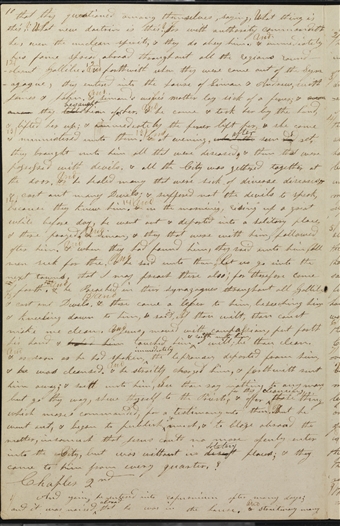 " that they questioned among themselves saying, What thing is
this? What new doctrine is this? for with authority commandeth
he even the unclean spirits, & they do obey him. & immediately
his fame spread abroad throughout all the regions round
about Gallilee. & forthwith when they were come out of the Syn
agogue, they entered into the house of Simon & Andrew, with
James & John, Simon's wifes mother lay sick of a fever, & anon
they him of her. & he came & took her by the hand
& lifted her up; & immediately the fever left her, & she
& ministered unto them. & at evening, sun set,
they brought unto him all that were diseased, & them that were
possessed with devils, & all the City was gathered together at
the door, & he healed many that were sick of diverse diseases
& cast out many devils; & suffered not the devils to speak,
because they knew him. & in the morning, rising up a great
while before day, he went out & departed into a solitary place,
& there prayed. & Simon, & they that were with him, followed
after him, & when they had found him, they said unto him, All
men seek for thee. & he said unto them, let us go into the
next towns, that I may preach there also; for therefore came
I forth. & he preached in their synagogues throughout all Gallilee
& cast out Devils. & there came a leper to him beseeching him,
& kneeling down to him, & said, if thou wilt, thou canst
make me clean. & Jesus, moved with compassion, put forth
his hand & touched him, & saith unto him, I will be thou clean.
& as soon as he had spoken, immediately the leprosy departed from him,
& he was cleansed. & he straitly charged him, & forthwith sent
him away; & saith unto him, See thou say nothing to any man
but go thy way, shew thyself to the Priests, & offer for thy cleansing those things
which moses commanded, for a testimony unto them. But he
went out, & began to publish it much, & to blaze abroad the
matter, insomuch that Jesus could no more openly enter
into the City, but was without in solitary places; & they
came to him from every quarter.
Chapter 2nd
And again he entered into capernaum after many days;
and it was noised that he was in the house, & straitway many